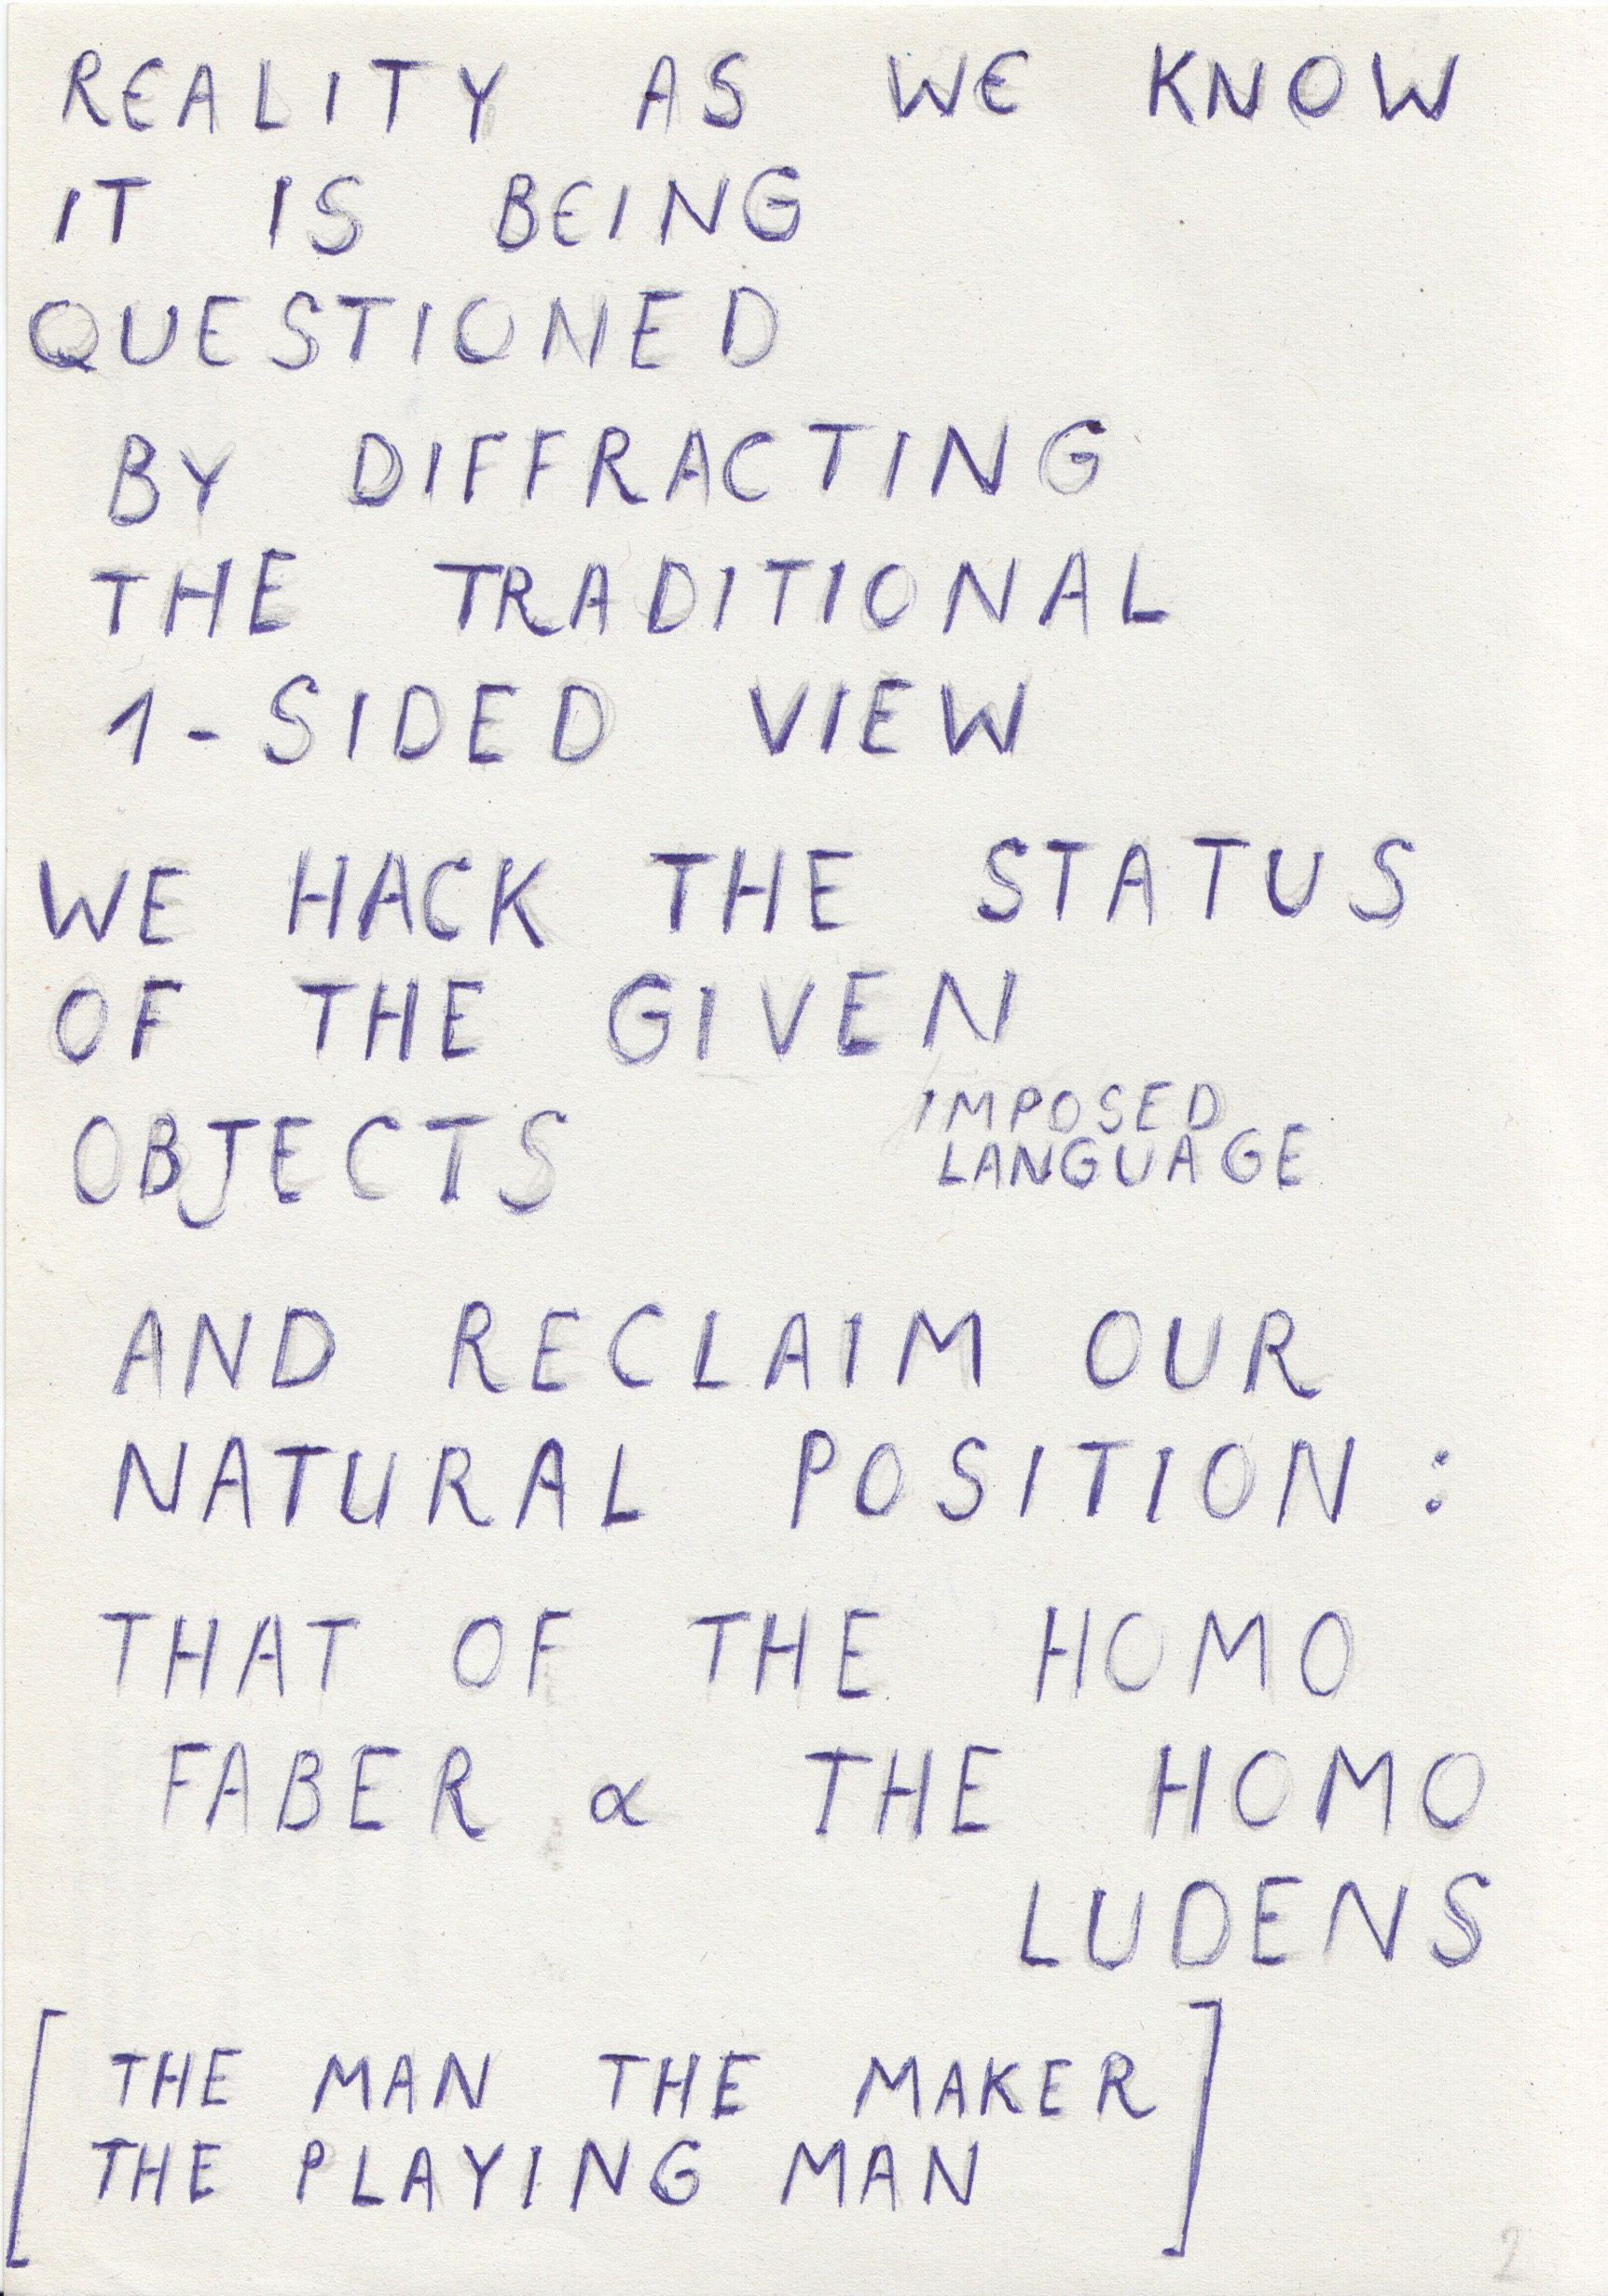 REALITY AS WE KNOW
IT IS BEING
QUESTIONED
BY DIFFRACTING
THE TRADITIONAL
1-SIDED VIEW
WE HACK THE STATUS
OF THE GIVEN
IMPOSED
LANGUAGE
OBJECTS
AND RECLAIM OUR
NATURAL POSITION :
THAT OF THE HOMO
FABER ∝ THE HOMO
LUDENS
[ THE MAN THE MAKER
THE PLAYING MAN ]
2